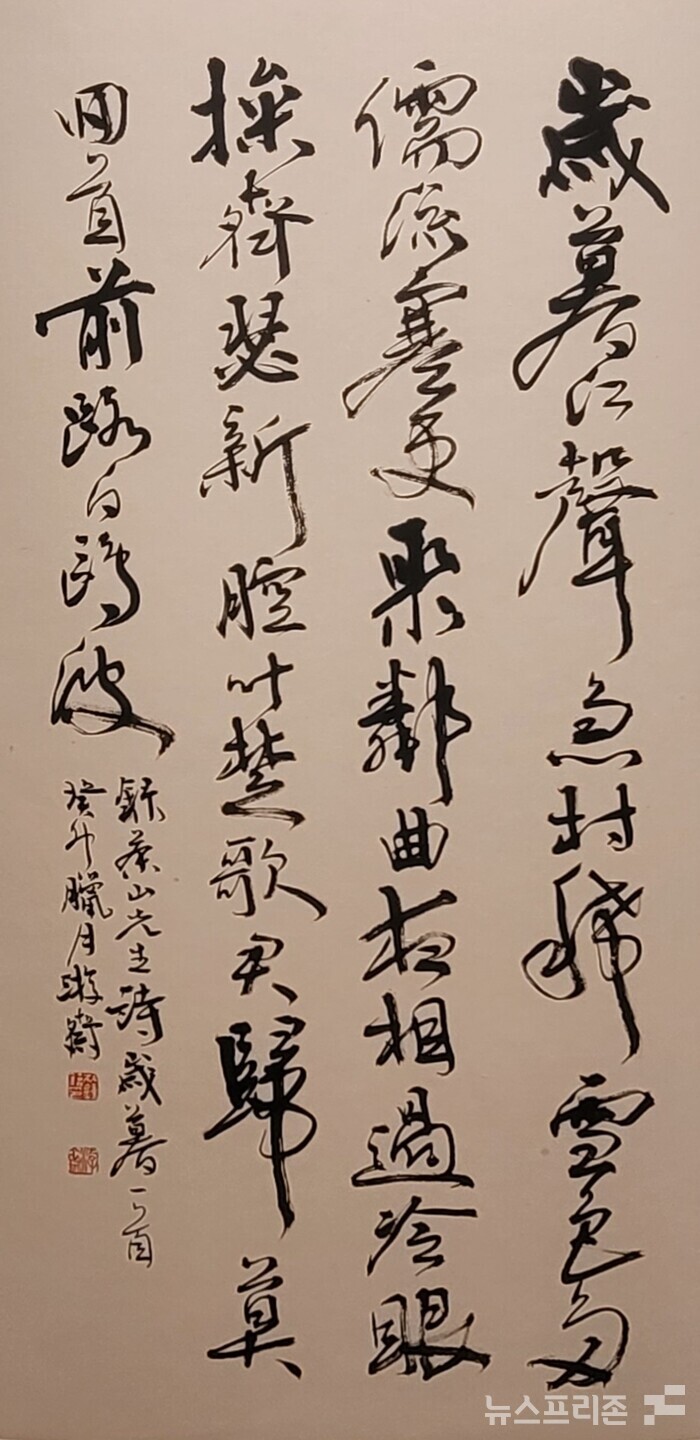 歲暮江聲急村稀雪色多
儒流寒更聚鄰曲枉相過冷眼
操齊瑟新腔叶楚歌君歸莫
回首前路白鷗波
錄茶山先生詩歲暮一首
癸卯臘月
뉴스프리존